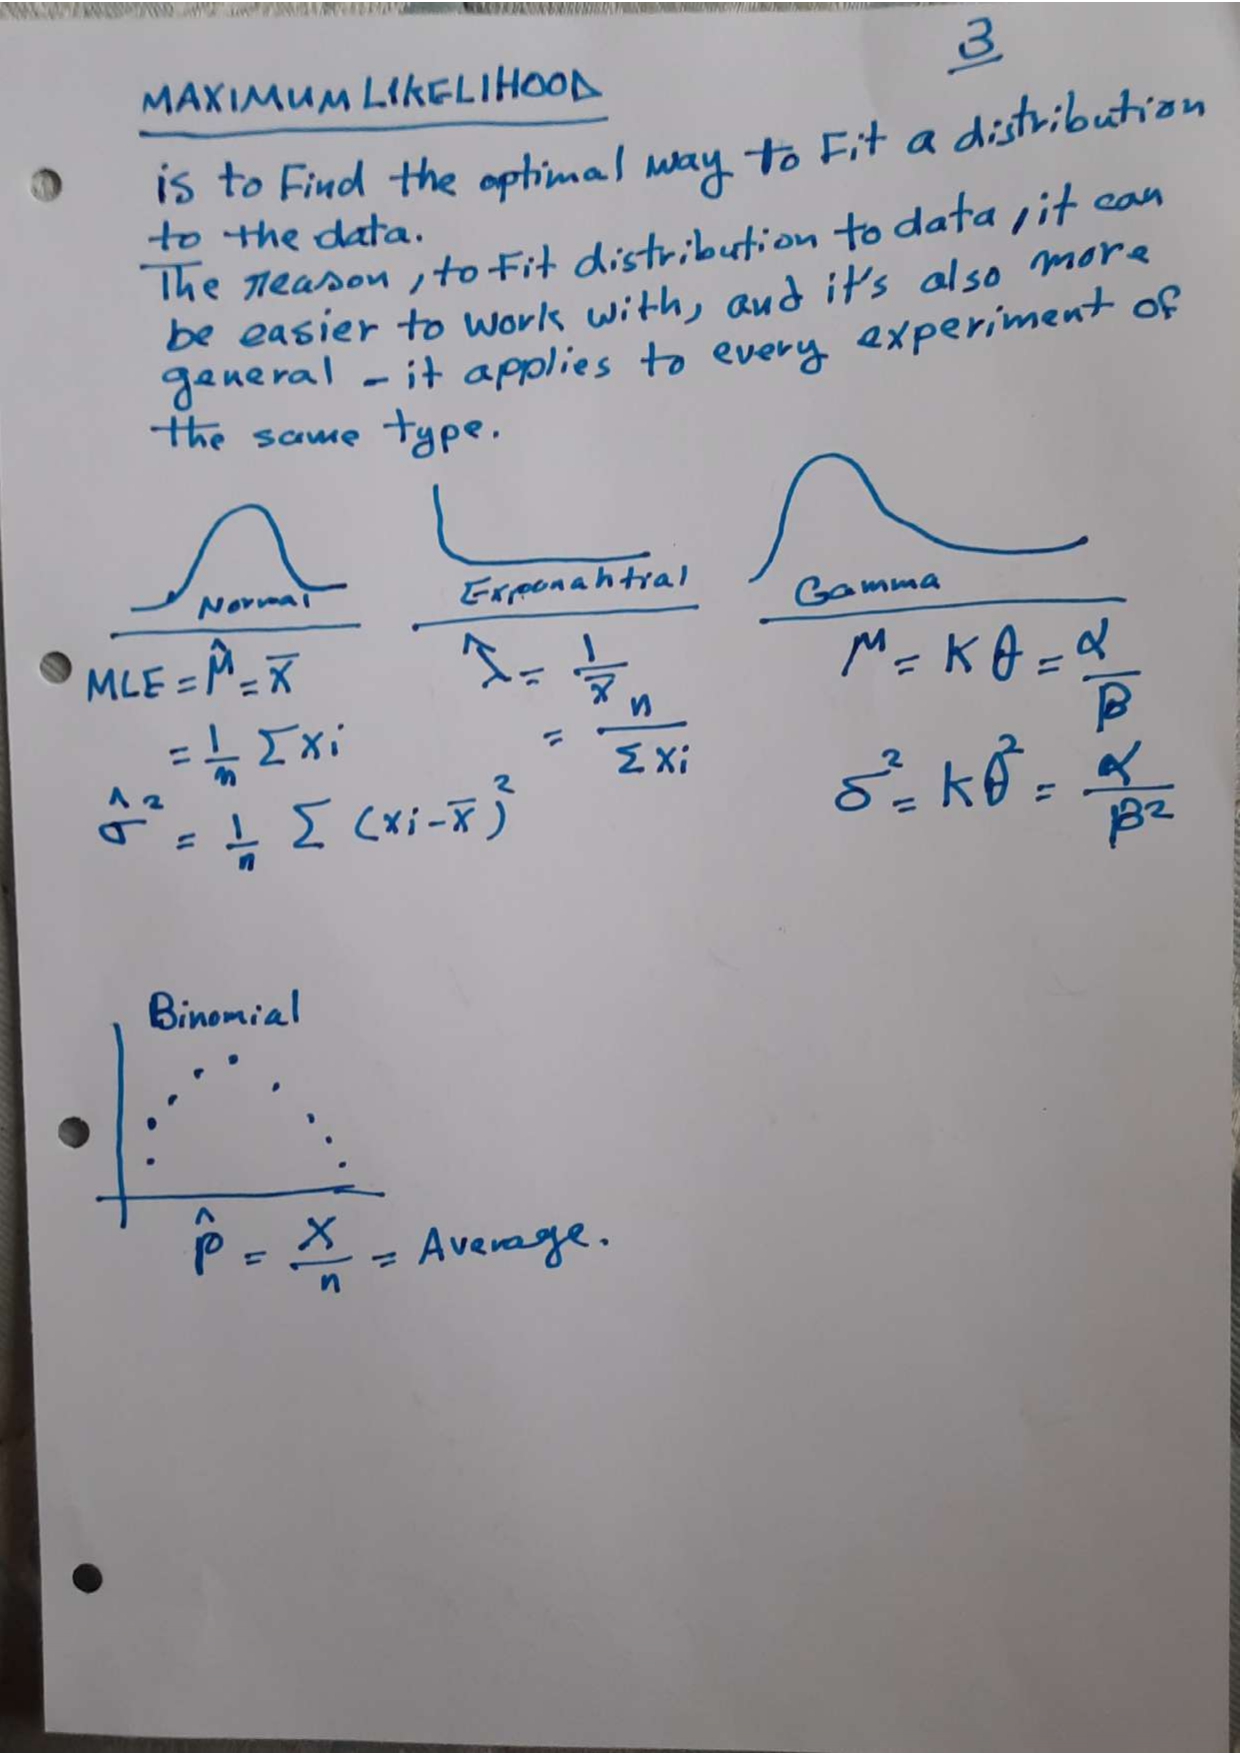 3
MAXIMUM LIKELIHOOD
is to Find the optimal way to Fit a distribution
to the data.
The reason, to Fit distribution to data, it can
be easier to work with, and it's also more
general - it applies to every experiment of
the same type.
Normal
Exponahtial
Gamma
MLE = μ̂ = x̄
= 1/n Σ xi
σ̂² = 1/n Σ (xi - x̄)²
λ̂ = 1/x̄
= n/Σ xi
μ = K θ = α/β
δ² = kθ² = α/β²
Binomial
p̂ = X/n = Average.